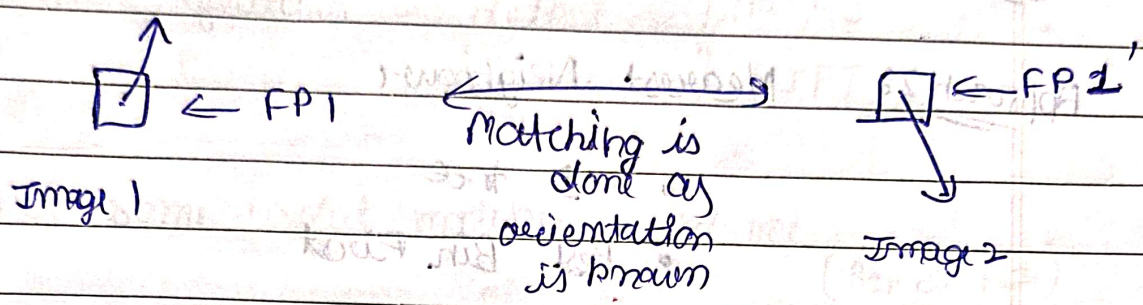 ← FP1
← FP1'
Matching is
done as
orientation
is known
Image 1
Image 2